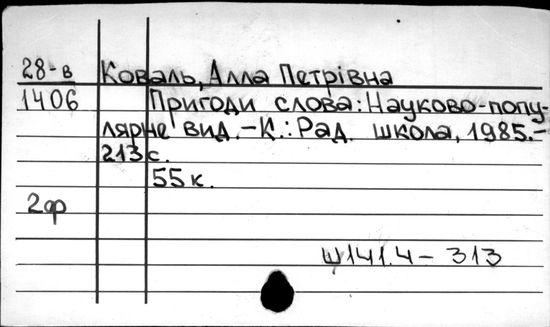 28-в Коваль, Алла Петрівна
1406 Пригоди слова: Науково-попу-
лярне вид. – К.: Рад. школа, 1985. –
213 с.
55 к.
2ф
Ш141.4 – 313